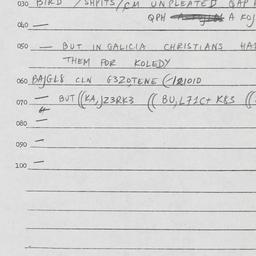 030 BIRD / SHPITS/CM UNPLEATED GAP
QPH A KOJ
040 —
050 — BUT IN GALICIA CHRISTIANS HA
THEM FOR KOLEDY
060 BAJGL8 CLN G3ZOTENE
070 — BUT ((KA,)Z3RK3 ((BU,L71C+ K8S ((
080 —
090 —
100 —